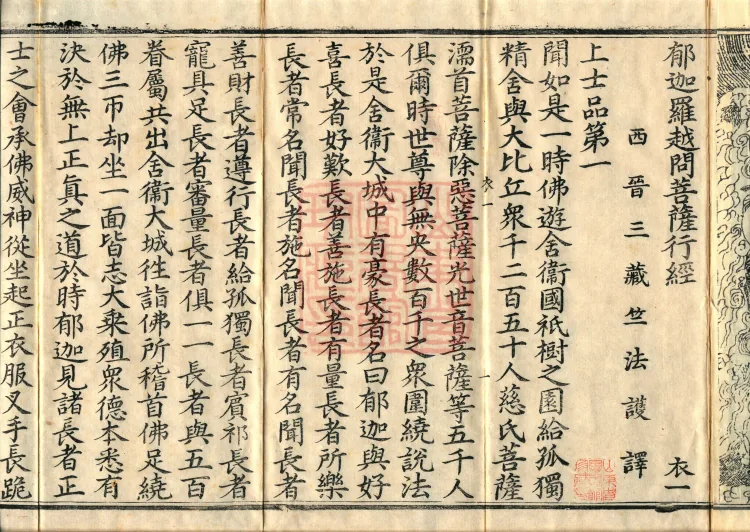 郁迦羅越問菩薩行經 衣一
西晉三藏竺法護譯
上士品第一
聞如是一時佛遊舍衞國祇樹之園給孤獨
精舍與大比丘衆千二百五十人慈氏菩薩
衣一 一
濡首菩薩除惡菩薩光世音菩薩等五千人
俱爾時世尊與無央數百千之衆圍繞說法
於是舍衞大城中有豪長者名曰郁迦與好
喜長者好歎長者善施長者有量長者所樂
長者常名聞長者施名聞長者有名聞長者
善財長者遵行長者給孤獨長者賓祁長者
寵具足長者審量長者俱一一長者與五百
眷屬共出舍衞大城徃詣佛所稽首佛足繞
佛三帀却坐一面皆志大乘殖衆德本悉有
決於無上正眞之道於時郁迦見諸長者正
士之會承佛威神從坐起正衣服叉手長跪